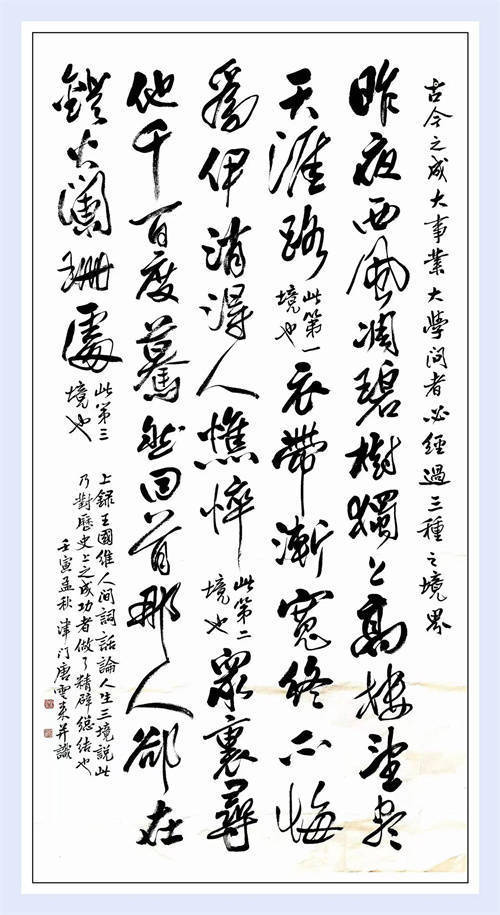 古今之成大事業大學问者必經過三種之境界
昨夜西風凋碧樹獨上高楼望尽
天涯路
此第一
境也
衣帶漸寬終不悔
爲伊消得人憔悴
此第二
境也
眾裏尋
他千百度驀然回首那人卻在
鐙火闌珊處
此第三
境也
上録王國維人间詞話論人生三境說此
乃對歷史上之成功者做了精辟總结也
壬寅孟秋津门唐雲来并識